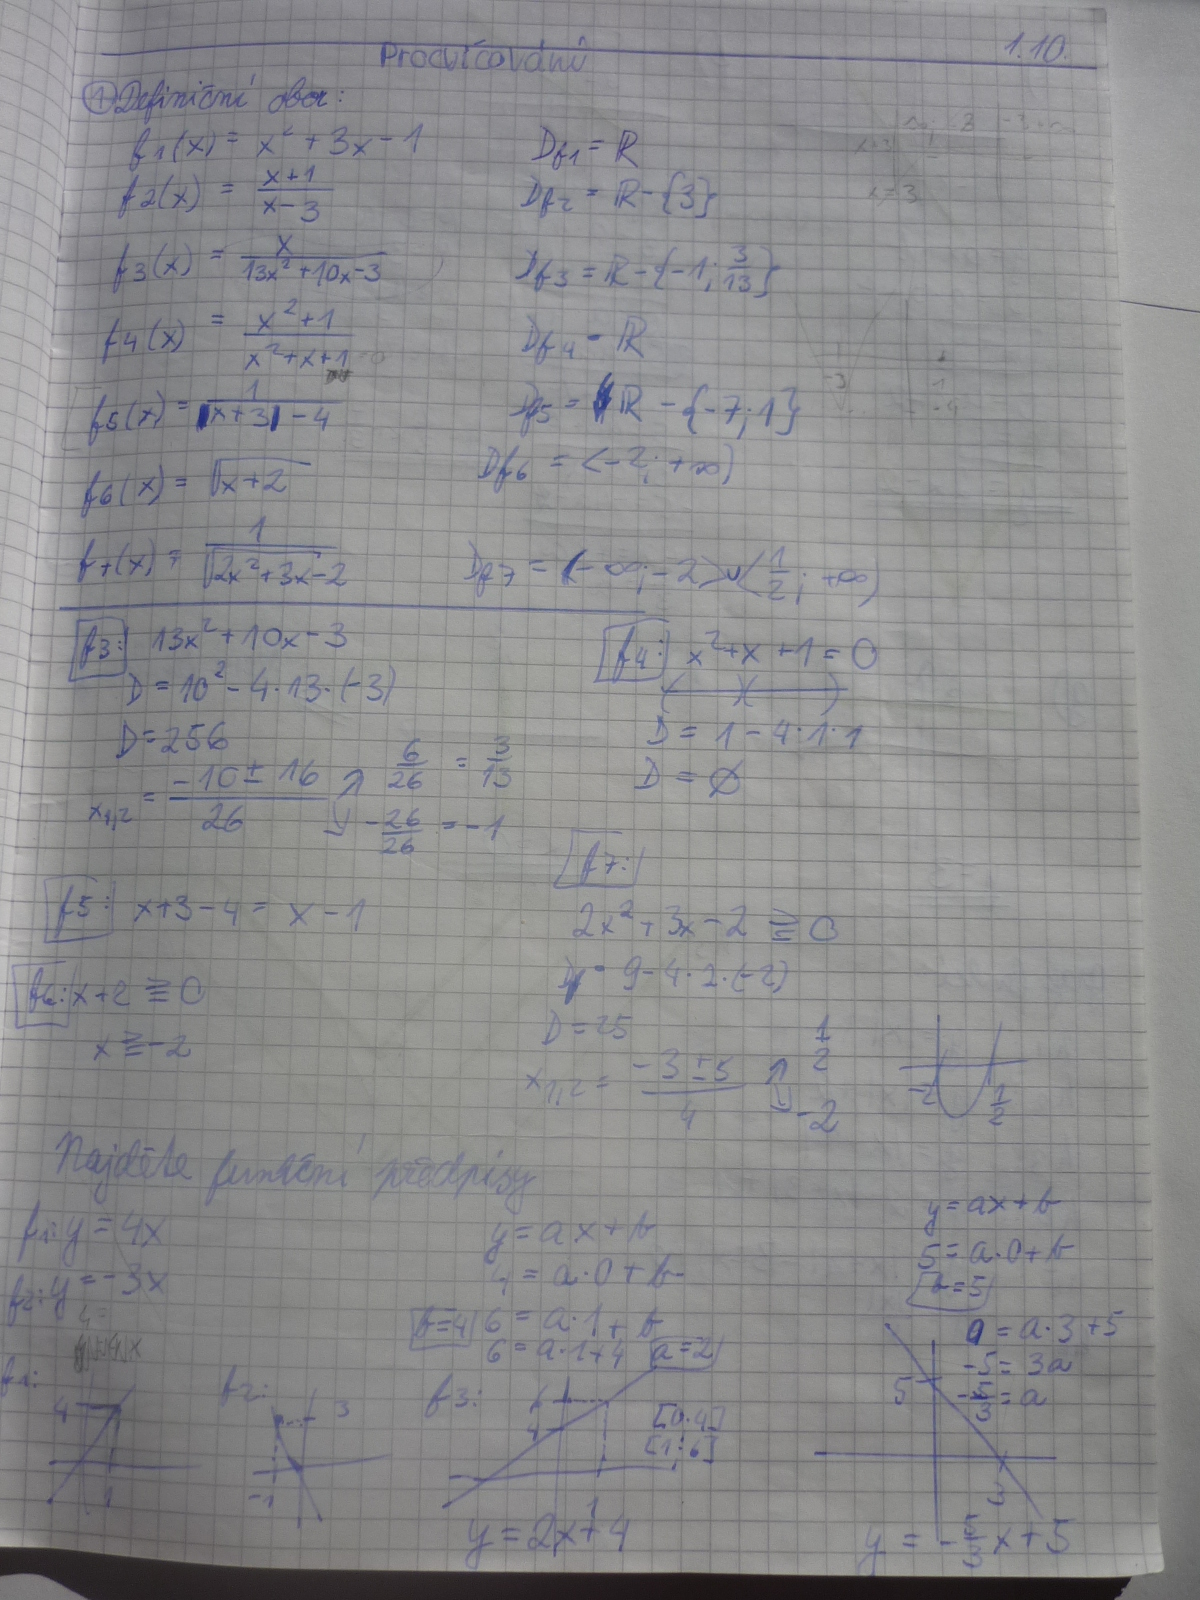 Procvičování 1.10.
① Definiční obor:
f1(x) = x² + 3x - 1 Df1 = ℝ
f2(x) = (x+1)/(x-3) Df2 = ℝ - {3}
f3(x) = x/(13x²+10x-3) Df3 = ℝ - {-1; 3/13}
f4(x) = (x²+1)/(x²+x+1) Df4 = ℝ
f5(x) = 1/(|x+3| - 4) Df5 = ℝ - {-7; 1}
f6(x) = √(x+2) Df6 = <-2; +∞)
f7(x) = 1/√(2x²+3x-2) Df7 = (-∞; -2) ∪ (1/2; +∞)
f3: 13x²+10x-3
D = 10² - 4·13·(-3)
D = 256
x1,2 = (-10 ± 16)/26 ↗ 6/26 = 3/13
↘ -26/26 = -1
f4: x²+x+1 = 0
( )( )
D = 1 - 4·1·1
D = ∅
f5: x+3-4 = x-1
f6: x+2 ≧ 0
x ≧ -2
f7:
2x²+3x-2 ≧ 0
D = 9-4·2·(-2)
D = 25
x1,2 = (-3 ± 5)/4 ↗ 1/2
↘ -2
-2 1/2
Najděte funkční předpisy
f1: y = 4x
f2: y = -3x
y = ax+b
4 = a·0+b
b=4 6 = a·1+b
6 = a·1+4 a=2
y = ax+b
5 = a·0+b
b=5
0 = a·3+5
-5 = 3a
-5/3 = a
f1: 4 1
f2: 3 -1
f3: 6 4 1
[0;4]
[1;6]
y = 2x+4
5 3
y = -5/3x+5